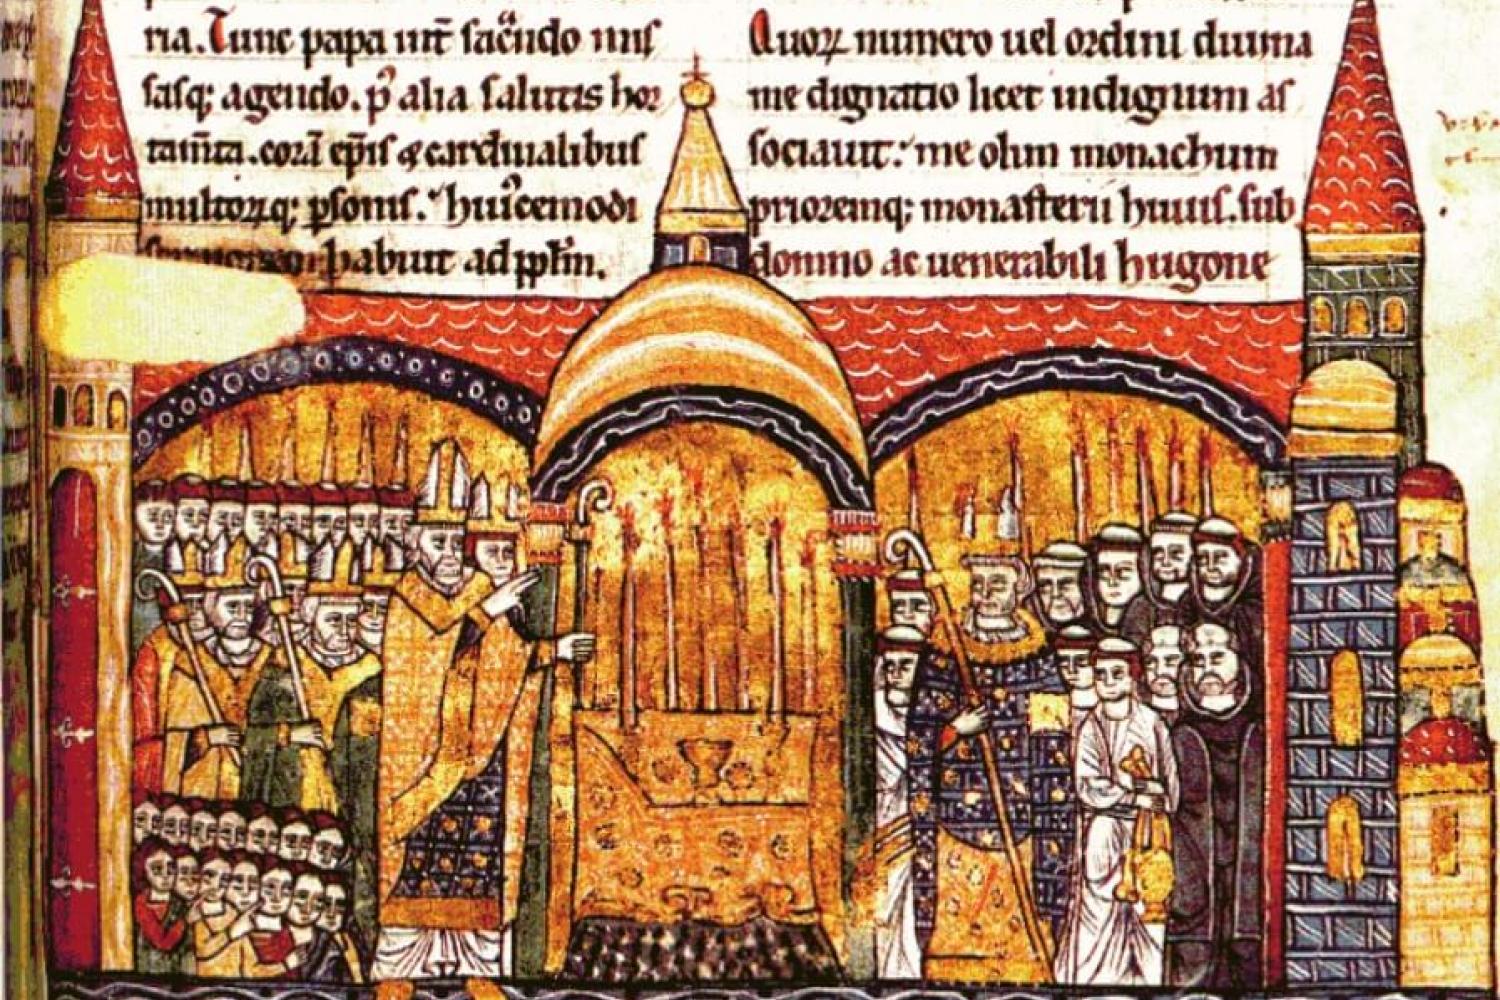 ria. Tunc papa int̄ sac̄ndo mis
sasq; agendo. p᷒ alia salutis hor
tam̄ta. corā ep̄is & cardinalibus
multorꝝq; ꝑsonis. huiꝰcemodi
habuit ad pplm̄.
Quorꝝ numero uel ordini diuina
me dignatio licet indignum as
sociauit: me olim monachum
prioremq; monasterii huius. sub
domno ac uenerabili hugone